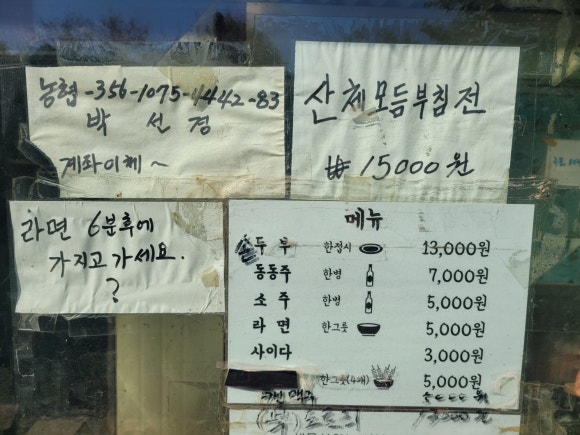 농협-356-1075-4442-83
박 선 정
계좌이체~
산체모듬부침전
₩15000원
라면 6분후에
가지고가세요.
?
메뉴
두 부 한접시 13,000원
동동주 한병 7,000원
소 주 한병 5,000원
라 면 한그릇 5,000원
사이다 3,000원
한그릇(4개) 5,000원
캔맥주